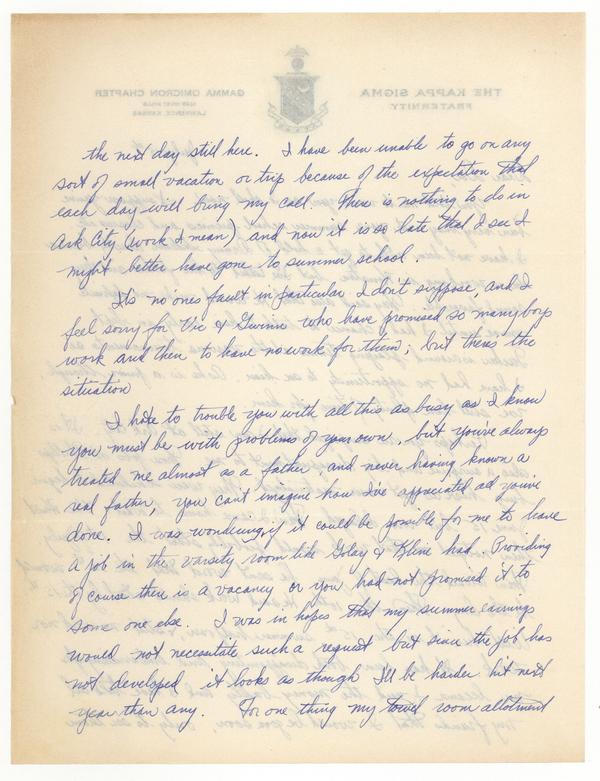 THE KAPPA SIGMA
FRATERNITY
GAMMA OMICRON CHAPTER
LAWRENCE, KANSAS
the next day still here. I have been unable to go on any
sort of small vacation or trip because of the expectation that
each day will bring my call. There is nothing to do in
Ark City (work I mean) and now it is so late that I see I
might better have gone to summer school.
It's no ones fault in particular I don't suppose, and I
feel sorry for Vic & Gwinn who have promised so many boys
work and then to have no work for them; but theres the
situation
I hate to trouble you with all this as busy as I know
you must be with problems of your own, but you've always
treated me almost as a father, and never having known a
real father, you can't imagine how I've appreciated all you've
done. I was wondering, if it could be possible for me to have
a job in the varsity room like Golay & Kline had. Providing
of course there is a vacancy or you had not promised it to
some one else. I was in hopes that my summer earnings
would not necessitate such a request but since the job has
not developed it looks as though I'll be harder hit next
year than any. For one thing my towel room allotment